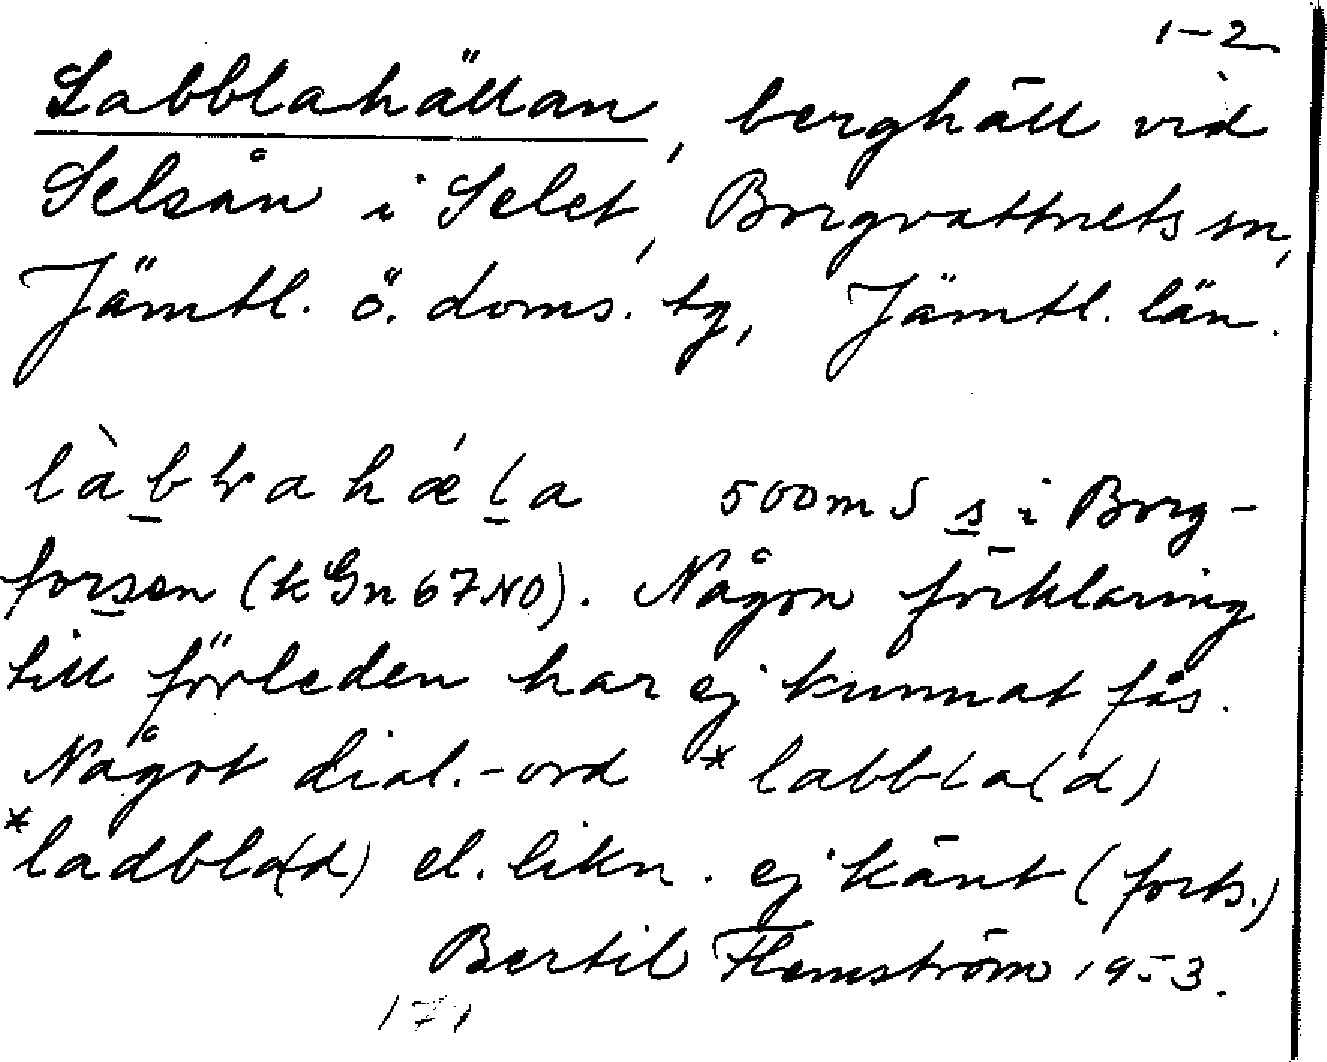 1-2
Labblahällan, berghäll vid
Selsån i Selet, Borgvattnets sn,
Jämtl. ö. doms. tg, Jämtl. län.
500 m S s i Borg-
forsen (k Gn 67 NO). Någon förklaring
till förleden har ej kunnat fås.
Något dial.-ord *labbla(d)
*ladbla(d) el. likn. ej känt (forts.)
Bertil Flemström 1953.
171